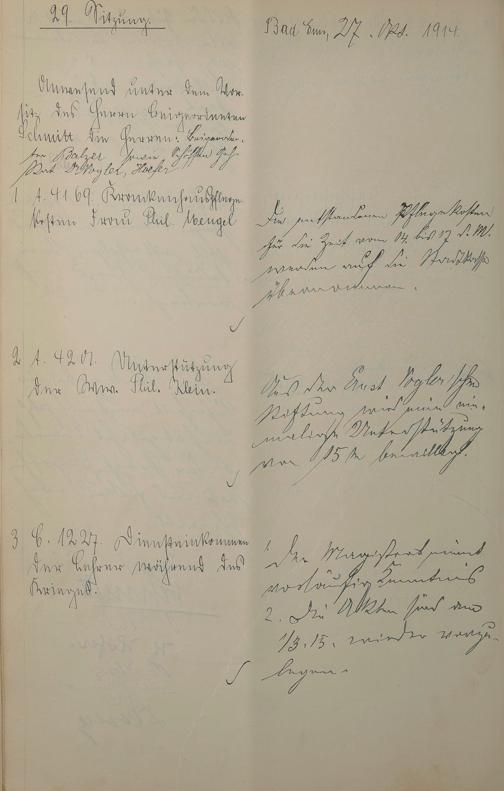 29. Sitzung.
Bad Ems, 27. Okt. 1914.
Anwesend unter dem Vor-
sitz des Herrn Beigeordneten
Schmitt die Herren: Beigeordne-
ter Balzer sowie Schöffen Geh.
Rat Dr Vogler, Hoefer
1 A. 4169 Krankenhauspflege-
kosten Frau Phil. Mengel
Die entstandenen Pflegekosten
für die Zeit vom 14. bis 17. d. Mt.
werden auf die Stadtkasse
übernommen.
2 A. 4201. Unterstützung
der Wwe. Phil. Klein.
Aus der Ernst Vogler'schen
Stiftung wird eine ein-
malige Unterstützung
von 15 M bewilligt.
3 C. 1227. Diensteinkommen
der Lehrer während des
Krieges.
1. Der Magistrat nimmt
vorläufig Kenntnis
2. Die Akten sind am
1/3.15. wieder vorzu-
legen.